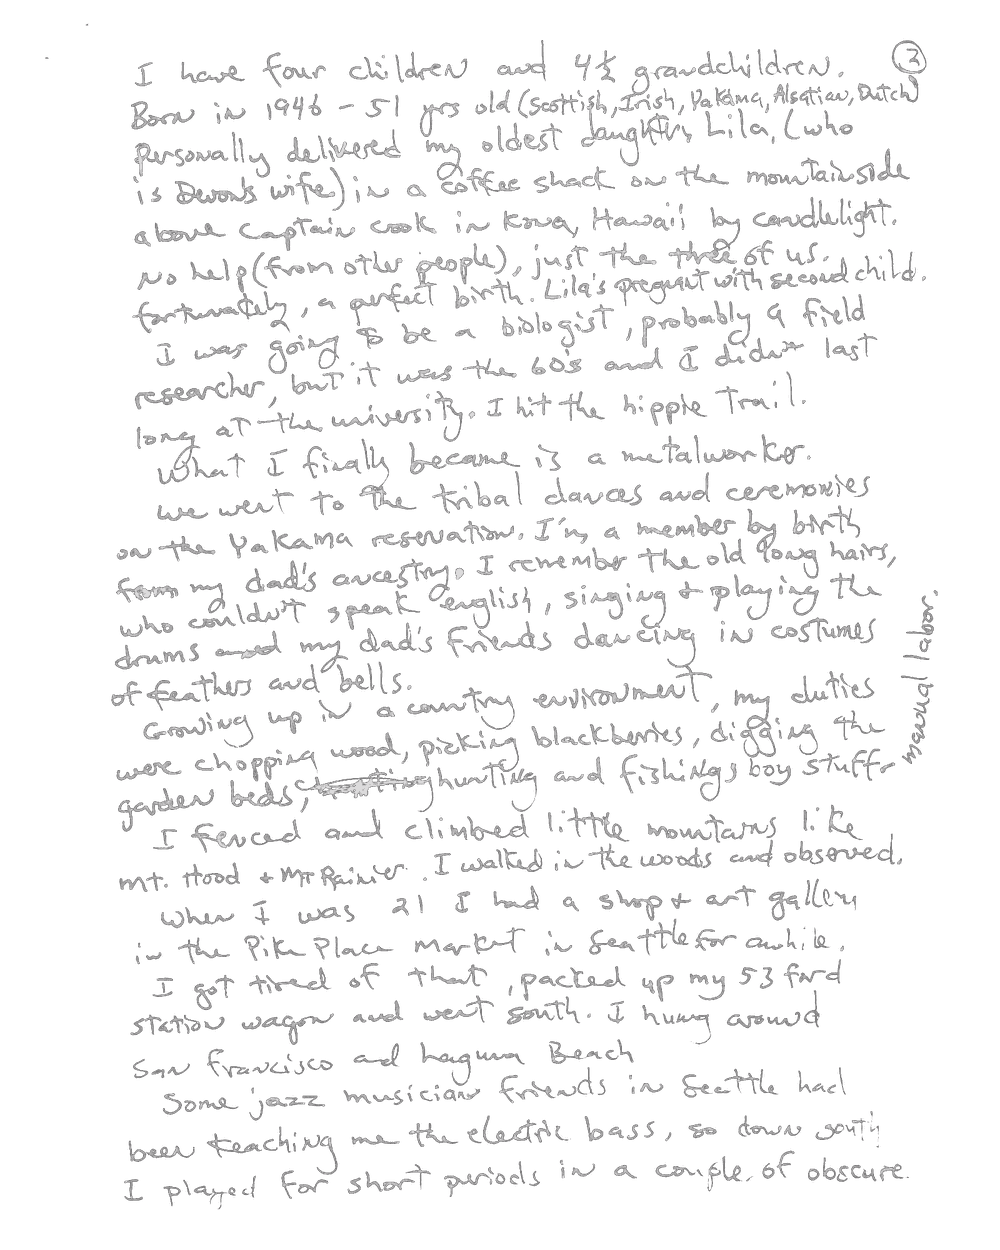 3
I have four children and 4½ grandchildren.
Born in 1946 - 51 yrs old (Scottish, Irish, Yakama, Alsatian, Dutch)
Personally delivered my oldest daughter, Lila, (who
is Devon's wife) in a coffee shack on the mountainside
above Captain Cook in Kona, Hawaii by candlelight.
No help (from other people), just the three of us.
fortunately, a perfect birth. Lila's pregnant with second child.
I was going to be a biologist, probably a field
researcher, but it was the 60's and I didn't last
long at the university. I hit the hippie trail.
What I finally became is a metalworker.
We went to the tribal dances and ceremonies
on the Yakama reservation. I'm a member by birth
from my dad's ancestry. I remember the old long hairs,
who couldn't speak english, singing + playing the
drums and my dad's friends dancing in costumes
of feathers and bells.
Growing up in a country environment, my duties
were chopping wood, picking blackberries, digging the
garden beds, hunting and fishings boy stuff-
manual labor.
I fenced and climbed little mountains like
Mt. Hood + Mt Rainier. I walked in the woods and observed.
When I was 21 I had a shop + art gallery
in the Pike Place Market in Seattle for awhile.
I got tired of that, packed up my 53 ford
station wagon and went south. I hung around
San Francisco and Laguna Beach
Some jazz musician friends in Seattle had
been teaching me the electric bass, so down south
I played for short periods in a couple of obscure